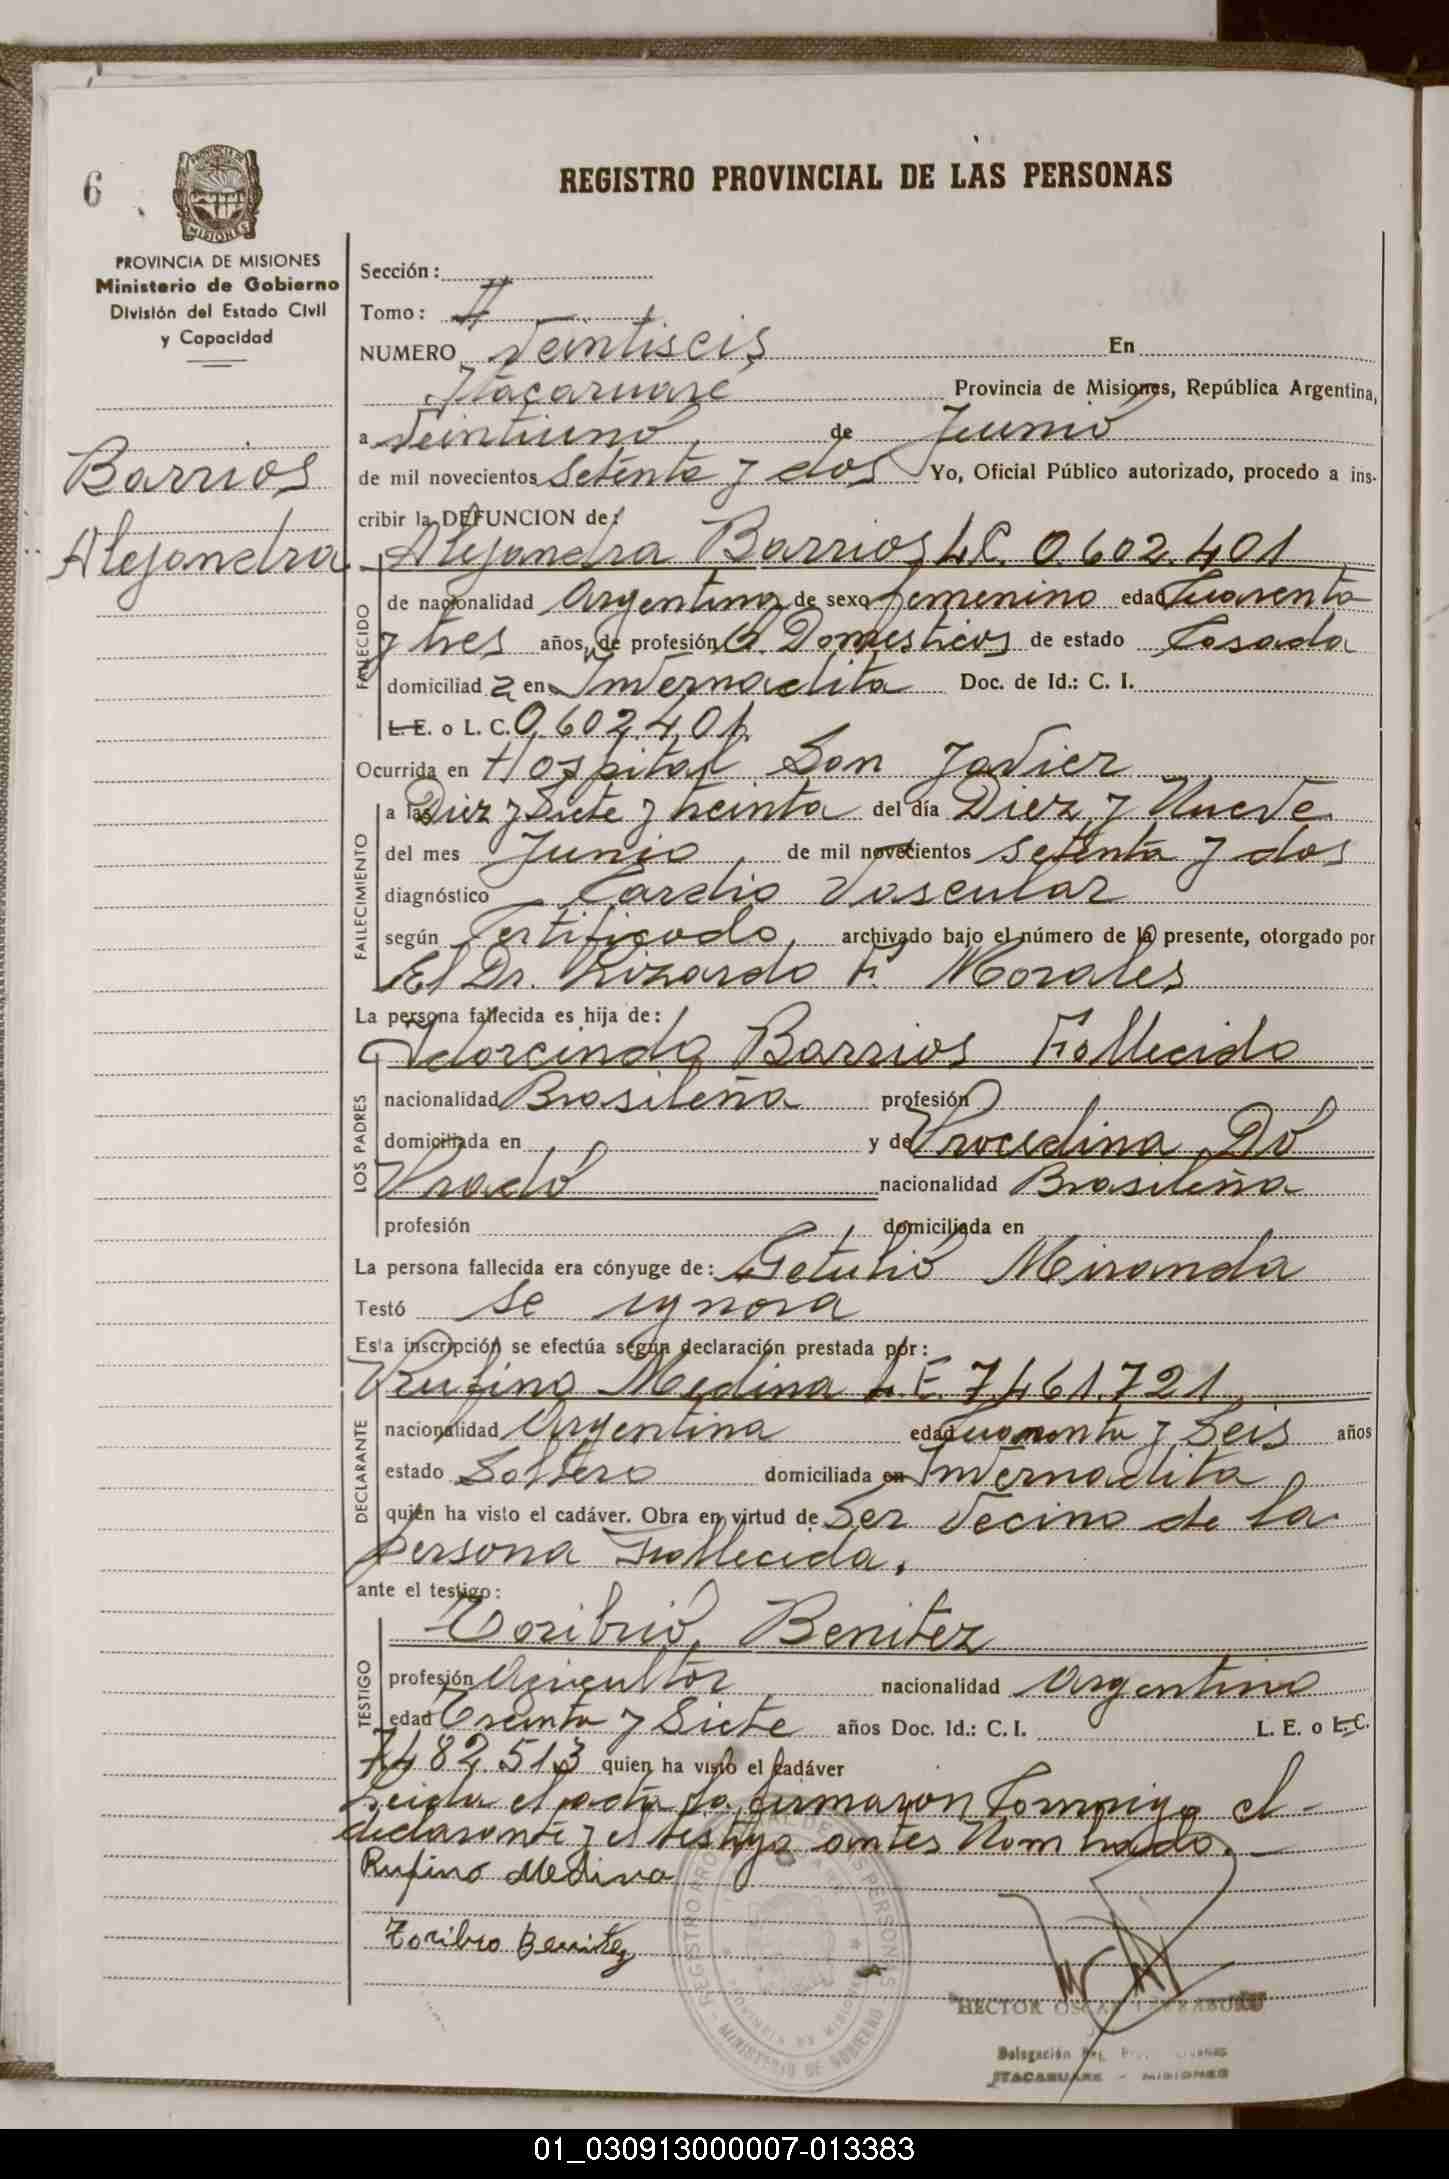 6
MISIONES
REGISTRO PROVINCIAL DE LAS PERSONAS
PROVINCIA DE MISIONES
Ministerio de Gobierno
División del Estado Civil
y Capacidad
Barrios
Alejandra.
Sección:
Tomo:
NUMERO Veintiseis En
Itacaruaré Provincia de Misiones, República Argentina,
a Veintiuno de Junio
de mil novecientos Setenta y dos Yo, Oficial Público autorizado, procedo a ins-
cribir la DEFUNCION de:
Alejandra Barrios L.C. 0.602.401
FALLECIDO
de nacionalidad Argentina de sexo femenino edad Cuarenta
y tres años, de profesión Q. Domesticos de estado Casada
domiciliada en Invernadita Doc. de Id.: C. I.
L.E. o L. C. 0.602.401.
Ocurrida en Hospital San Javier
FALLECIMIENTO
a las Diez y Siete y treinta del día Diez y Nueve
del mes Junio, de mil novecientos setenta y dos
diagnóstico Cardio Vascular
según Certificado, archivado bajo el número de la presente, otorgado por
El Dr. Lizardo F. Morales
La persona fallecida es hija de:
Adorcindo Barrios Fallecido
LOS PADRES
nacionalidad Brasileña profesión
domiciliada en y de Procedina Dó
Pradó nacionalidad Brasileña
profesión domiciliada en
La persona fallecida era cónyuge de: Getulió Miranda
Testó se ignora
Esta inscripción se efectúa según declaración prestada por:
Rufino Medina L.E. 7.461.721
DECLARANTE
nacionalidad Argentina edad Cuarenta y Seis años
estado Soltero domiciliada en Invernadita
quién ha visto el cadáver. Obra en virtud de Ser Vecino de la
persona Fallecida.
ante el testigo:
Toribió Benitez
TESTIGO
profesión Agricultor nacionalidad Argentino
edad Treinta y Siete años Doc. Id.: C. I. L. E. o L.C.
7.482.513 quien ha visto el cadáver
Leida el acta la firmaron Conmigo el
declarante y el testigo antes Nombrado.
Rufino Medina
Toribio Benitez
REGISTRO PROVINCIAL DE LAS PERSONAS
MINISTERIO DE GOBIERNO
HECTOR OSCAR
Delegación
ITACARUARE - MISIONES
01_030913000007-013383